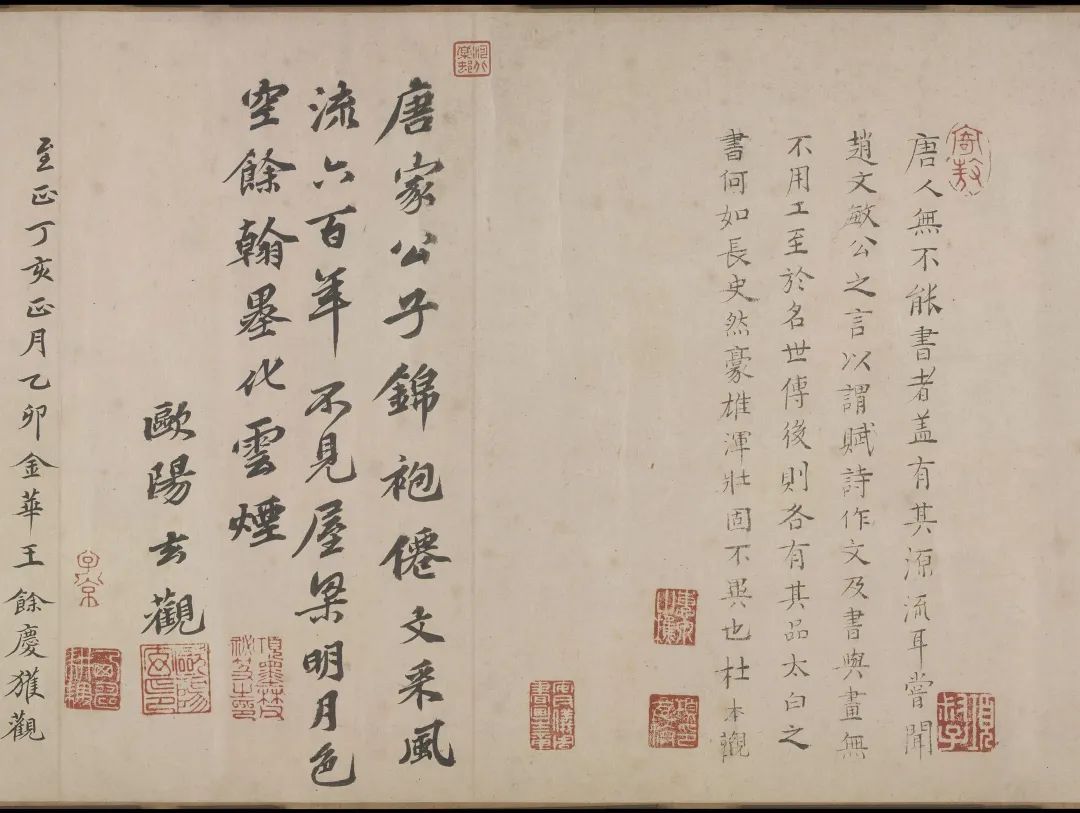 唐人無不能書者盖有其源流耳嘗聞
趙文敏公之言以謂賦詩作文及書與畫無
不用工至於名世傳後則各有其品太白之
書何如長史然豪雄渾壯固不異也杜本觀
唐家公子錦袍僊文采風
流六百年不見屋梁明月色
空餘翰墨化雲煙
歐陽玄觀
至正丁亥正月乙卯金華王餘慶獲觀
子京
項墨林父
祕笈之印